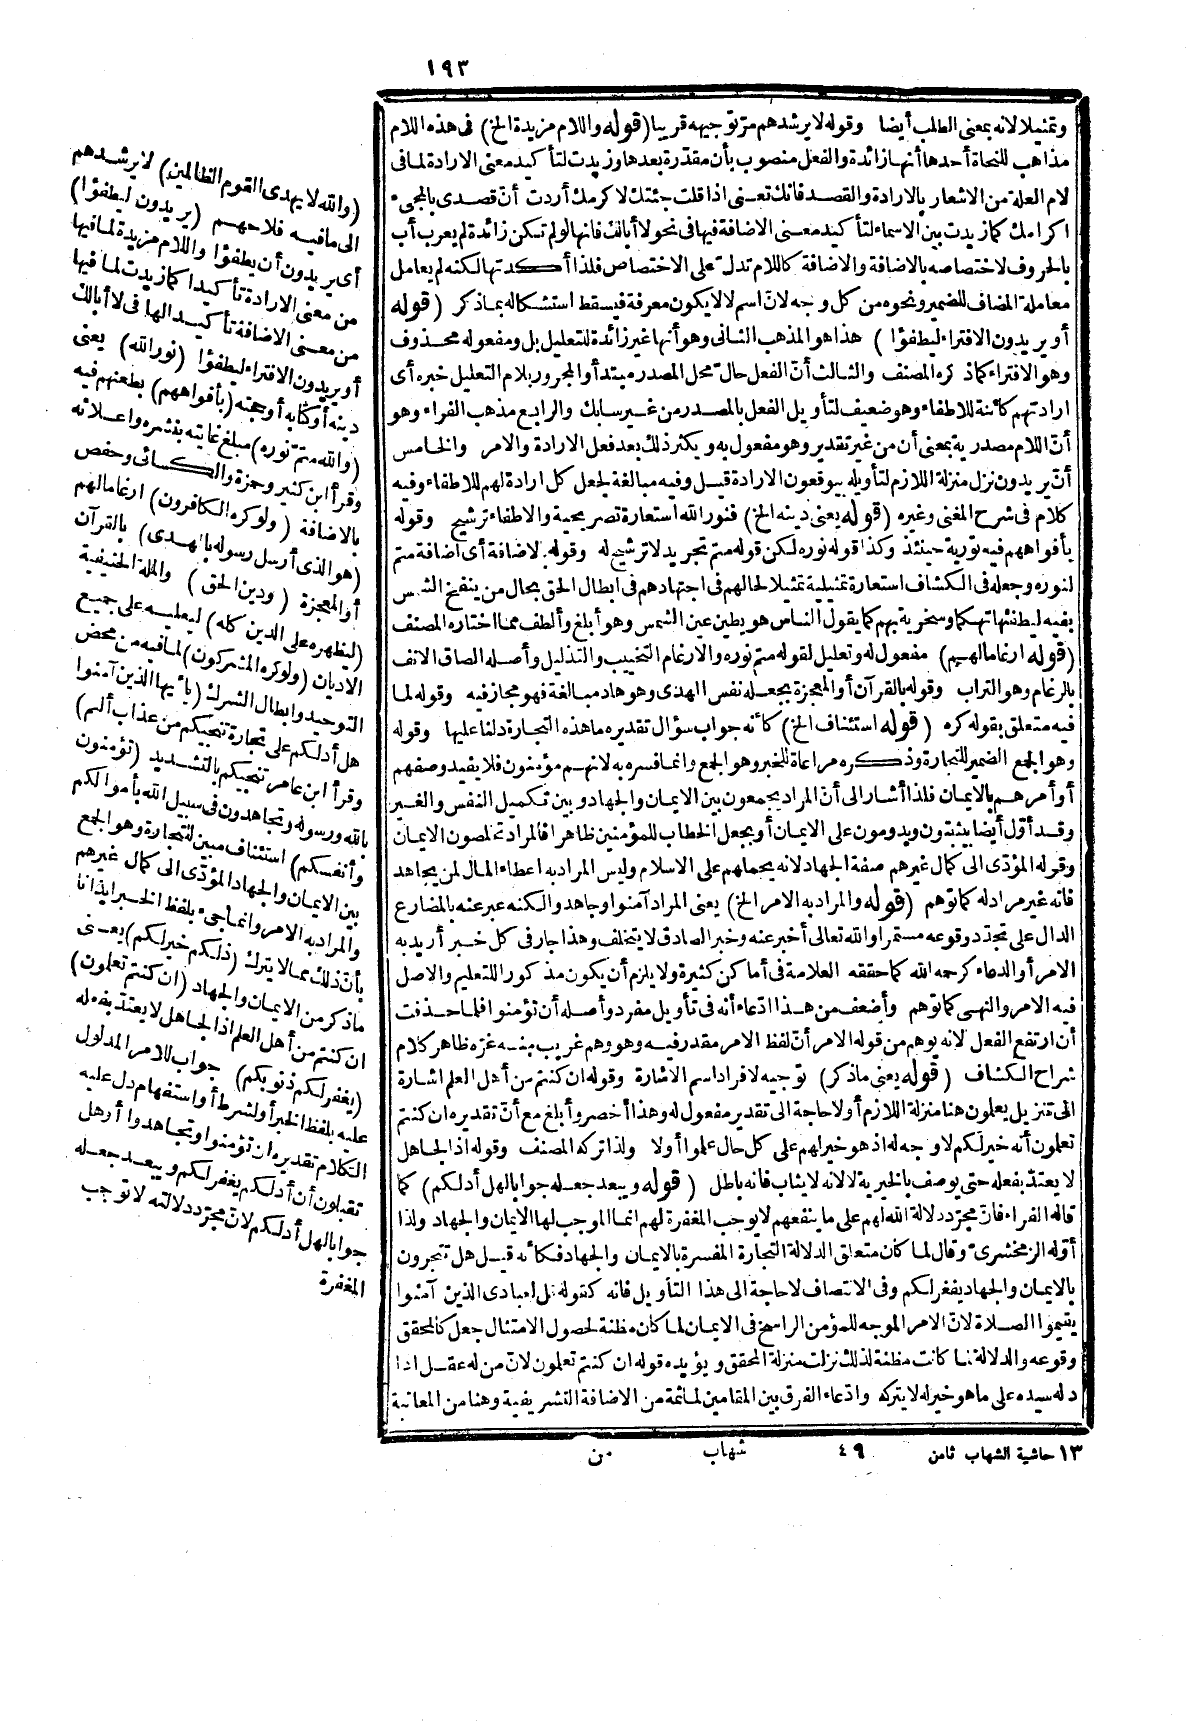 ١٩٣
وتمثيلا لانه بمعنى الطلب أيضا وقوله لا يرشدهم مرّ توجيهه قريبا (قوله واللام مزيدة الخ) فى هذه اللام
مذاهب للنحاة أحدها أنها زائدة والفعل منصوب بأن مقدّرة بعدها وزيدت لتأكيد معنى الارادة لما فى
لام العلة من الاشعار بالارادة والقصد فانك تعنى اذا قلت جئتك لا كرمك أردت أنّ قصدى بالمجىء
اكرامك كما زيدت بين الاسماء لتأكيد معنى الاضافة فيها فى نحو لا أبالك فانها لو لم تكن زائدة لم يعرب أب
بالحروف لاختصاصه بالاضافة والاضافة كاللام تدلّ على الاختصاص فلذا أكدتها لكنه لم يعامل
معاملة المضاف للضمير ونحوه من كل وجه لانّ اسم لا لا يكون معرفة فيسقط استشكاله بما ذكر (قوله
أو يريدون الافتراء ليطفؤا) هذا هو المذهب الثانى وهو أنها غير زائدة للتعليل بل ومفعوله محذوف
وهو الافتراء كما ذكره المصنف والثالث أنّ الفعل حالّ محل المصدر مبتدأ والمجرور بلام التعليل خبره أى
ارادتهم كائنة للاطفاء وهو ضعيف لتأويل الفعل بالمصدر من غير سابك والرابع مذهب الفراء وهو
أنّ اللام مصدرية بمعنى أن من غير تقدير وهو مفعول به ويكثر ذلك بعد فعل الارادة والامر والخامس
أنّ يريدون نزل منزلة اللازم لتأويله بيوقعون الارادة قيل وفيه مبالغة لجعل كل ارادة لهم للاطفاء وفيه
كلام فى شرح المغنى وغيره (قوله يعنى دينه الخ) فنور الله استعارة تصريحية والاطفاء ترشيح وقوله
بأفواههم فيه تورية حينئذ وكذا قوله نوره لكن قوله متم تجريد لا ترشيح له وقوله بالاضافة أى اضافة متم
لنوره وجعله فى الكشاف استعارة تمثيلية تمثيلا لحالهم فى اجتهادهم فى ابطال الحق بحال من ينفخ الشمس
بفيه ليطفئها تهكما وسخرية بهم كما يقول الناس هو يطين عين الشمس وهو أبلغ وألطف مما اختاره المصنف
(قوله ارغاما لهم) مفعول له وتعليل لقوله متم نوره والارغام التخييب والتذليل وأصله الصاق الانف
بالرغام وهو التراب وقوله بالقرآن أو المعجزة بجعله نفس الهدى وهو هاد مبالغة فهو مجاز فيه وقوله لما
فيه متعلق بقوله كره (قوله استئناف الخ) كأنه جواب سؤال تقديره ما هذه التجارة دلنا عليها وقوله
وهو الجمع الضمير للتجارة وذكره مراعاة للخبر وهو الجمع وانما فسره به لانهم مؤمنون فلا يفيد وصفهم
أو أمرهم بالايمان فلذا أشار الى أنّ المراد يجمعون بين الايمان والجهاد وبين تكميل النفس والغير
وقد أوّل أيضا بيثبتون ويدومون على الايمان أو بجعل الخطاب للمؤمنين ظاهرا فالمراد تخلصون الايمان
وقوله المؤدّى الى كمال غيرهم صفة الجهاد لانه يحملهم على الاسلام وليس المراد به اعطاء المال لمن يجاهد
فانه غير مراد له كما توهم (قوله والمراد به الامر الخ) يعنى المراد آمنوا وجاهدوا لكنه عبر عنه بالمضارع
الدال على تجدّد وقوعه مستمرا والله تعالى أخبر عنه وخبر الصادق لا يتخلف وهذا جار فى كل خبر أريد به
الامر أو الدعاء كرحمه الله كما حققه العلامة فى أماكن كثيرة ولا يلزم أن يكون مذكورا للتعليم والاصل
فيه الامر والنهى كما توهم وأضعف من هذا ادّعاء أنه فى تأويل مفرد وأصله أن تؤمنوا فلما حذفت
أن ارتفع الفعل لانه توهم من قوله الامر أنّ لفظ الامر مقدر فيه وهو وهم غريب منه غرّه ظاهر كلام
شراح الكشاف (قوله يعنى ما ذكر) توجيه لافراد اسم الاشارة وقوله ان كنتم من أهل العلم اشارة
الى تنزيل يعلمون هنا منزلة اللازم أولا حاجة الى تقدير مفعول له وهذا أخصر وأبلغ مع أنّ تقديره ان كنتم
تعلمون أنه خير لكم لا وجه له اذ هو خير لهم على كل حال علموا أولا ولذا تركه المصنف وقوله اذ الجاهل
لا يعتدّ بفعله حتى يوصف بالخيرية لا لانه لا يثاب فانه باطل (قوله ويبعد جعله جوابا لهل أدلكم) كما
قاله الفراء فانّ مجرّد دلالة الله لهم على ما ينفعهم لا يوجب المغفرة لهم انما الموجب لها الايمان والجهاد ولذا
أوّله الزمخشرىّ وقال لما كان متعلق الدلالة التجارة المفسرة بالايمان والجهاد فكأنه قيل هل تتجرون
بالايمان والجهاد يغفر لكم وفى الانتصاف لا حاجة الى هذا التأويل فانه كقوله قل لعبادى الذين آمنوا
يقيموا الصلاة لانّ الامر الموجه للمؤمن الراسخ فى الايمان لما كان مظنة لحصول الامتثال جعل كالمحقق
وقوعه والدلالة لما كانت مظنة لذلك نزلت منزلة المحقق ويؤيده قوله ان كنتم تعلمون لانّ من له عقل اذا
دله سيده على ما هو خير له لا يتركه وادّعاء الفرق بين المقامين لما ثمة من الاضافة التشريفية وهنا من المعاتبة
(والله لا يهدى القوم الظالمين) لا يرشدهم
الى ما فيه فلاحهم (يريدون ليطفؤا)
أى يريدون أن يطفؤا واللام مزيدة لما فيها
من معنى الارادة تأكيدا كما زيدت لما فيها
من معنى الاضافة تأكيدا لها فى لا أبالك
أو يريدون الافتراء ليطفؤا (نور الله) يعنى
دينه أو كتابه أو حجته (بأفواههم) بطعنهم فيه
(والله متم نوره) مبلغ غايته بنشره واعلائه
وقرأ ابن كثير وحمزة والكسائى وحفص
بالاضافة (ولو كره الكافرون) ارغاما لهم
(هو الذى أرسل رسوله بالهدى) بالقرآن
أو المعجزة (ودين الحق) والملة الحنيفية
(ليظهره على الدين كله) ليعليه على جميع
الاديان (ولو كره المشركون) لما فيه من محض
التوحيد وابطال الشرك (يا أيها الذين آمنوا
هل أدلكم على تجارة تنجيكم من عذاب أليم)
وقرأ ابن عامر تنجيكم بالتشديد (تؤمنون
بالله ورسوله وتجاهدون فى سبيل الله بأموالكم
وأنفسكم) استئناف مبين للتجارة وهو الجمع
بين الايمان والجهاد المؤدّى الى كمال غيرهم
والمراد به الامر وانما جىء بلفظ الخبر ايذانا
بأنّ ذلك مما لا يترك (ذلكم خير لكم) يعنى
ما ذكر من الايمان والجهاد (ان كنتم تعلمون)
ان كنتم من أهل العلم اذ الجاهل لا يعتدّ بفعله
(يغفر لكم ذنوبكم) جواب للامر المدلول
عليه بلفظ الخبر أو لشرط أو استفهام دل عليه
الكلام تقديره ان تؤمنوا وتجاهدوا أو هل
تقبلون أن أدلكم يغفر لكم ويبعد جعله
جوابا لهل أدلكم لانّ مجرّد دلالته لا توجب
المغفرة
١٣ حاشية الشهاب ثامن
٤٩
شهاب
من